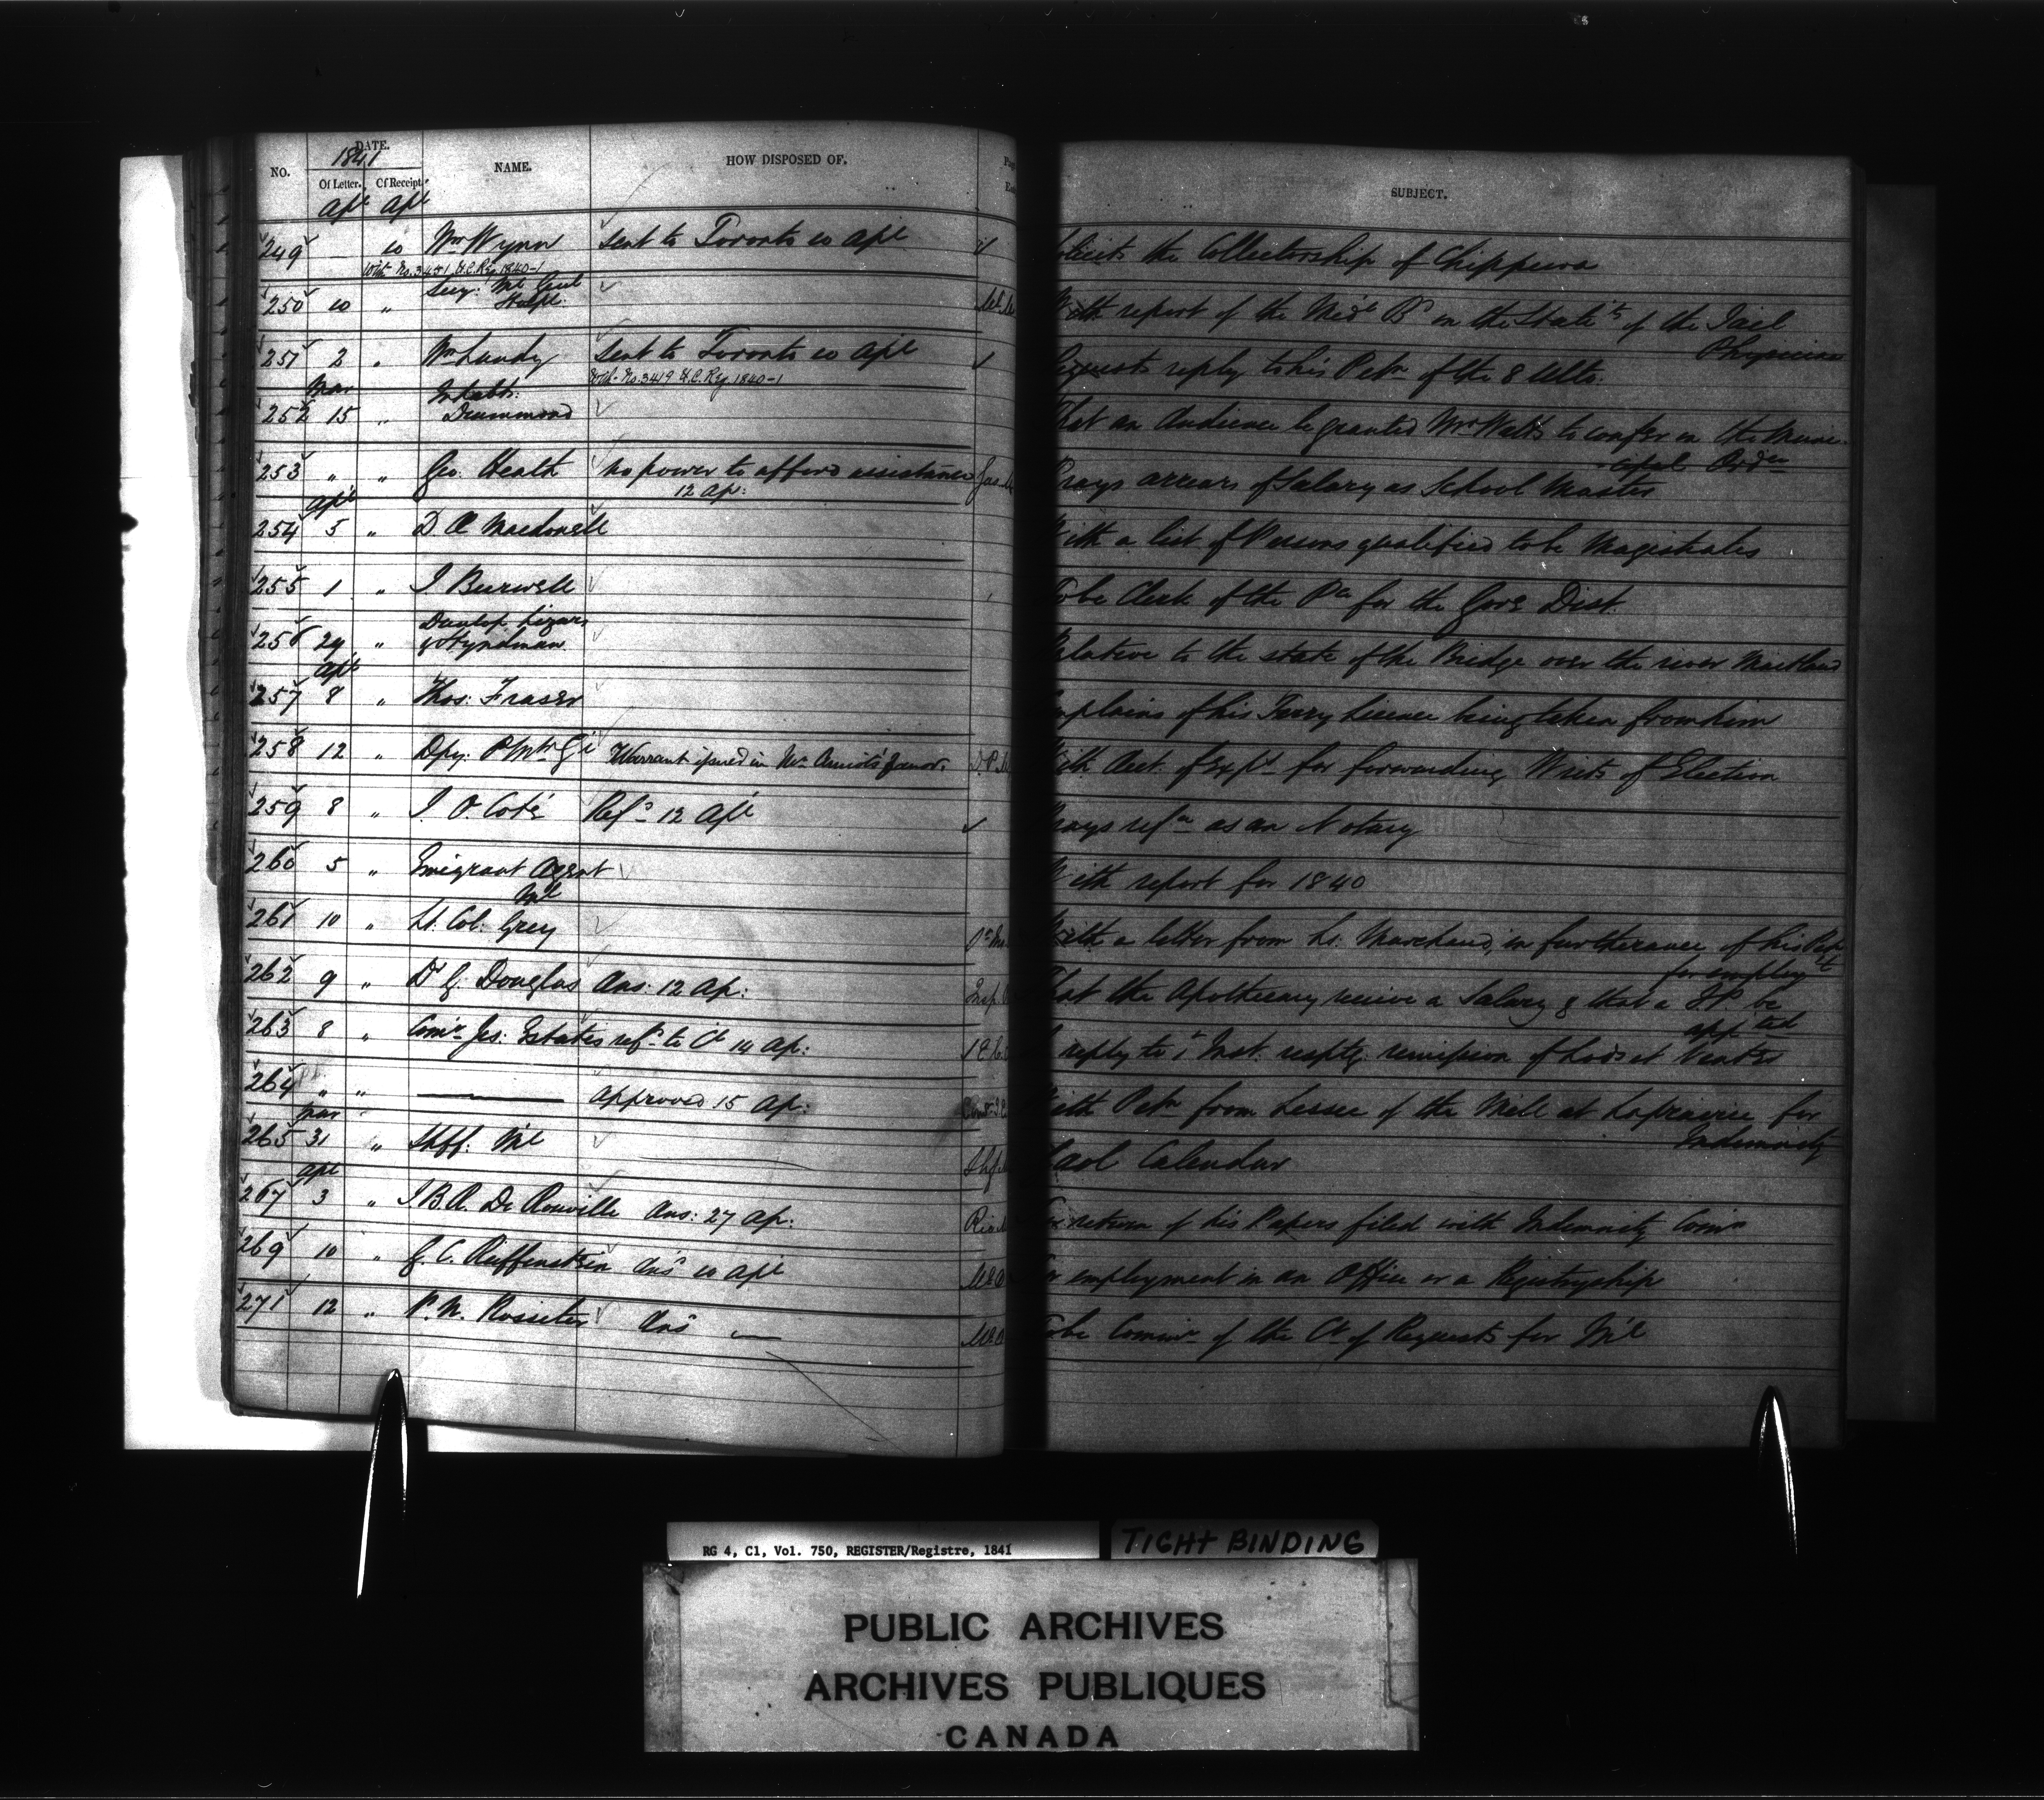 DATE.
1841
NO. Of Letter. Of Receipt. NAME. HOW DISPOSED OF. SUBJECT.
Apl Apl
249 10 Wm Wynn Sent to Toronto 10 Apl the Collectorship of Chippewa
With No. 3451 U.C. Reg. 1840-1
250 10 " Secy: Ml Genl Hospl: With report of the Medl Bd on the of the Jail
Physician
251 2 " Wm Lundy Sent to Toronto 10 Apl Requests reply to his Petn of the 8 Ulto.
With No. 3419 U.C. Reg. 1840-1
Mar Inhabts:
252 15 " Drummond That an Audience be granted Mr Watts to confer on the Muni-
cipal Ordce
253 " " Geo. Heath no power to afford assistance Prays arrears of Salary as School Master
12 Ap:
Apl
254 5 " D Æ Macdonell With a list of Persons qualified to be Magistrates
255 1 " J Burwell To be Clerk of the Pce for the Gore Dist.
Dunlop Lizars
256 29 " & Hyndman Relative to the state of the Bridge over the river Maitland
Apl
257 8 " Thos: Fraser Complains of his Ferry Licence being taken from him
258 12 " Dpy: P Mr Gl Warrant issued in Mr Amiot's favor. With Acct. of Expe for forwarding Writs of Election
259 8 " J. O. Coté Refd 12 Apl Prays refn as an Notary
260 5 " Emigrant Agent With report for 1840
Ml
261 10 " Lt. Col: Grey With a letter from Lt. Marchand, in furtherance of his
for employt
262 9 " Dr G. Douglas Ans: 12 Ap: That the Apothecary receive a Salary & that a H.P. be
appted
263 8 " Comr Jes: Estates refd to Cl 14 Ap: In reply to 1 Inst. resptg remission of Lods et Ventes
264 " " Approved 15 Ap: With Petn from Lessee of the Mill at Laprairie for
Indemnity
Mar
265 31 " Shff: Ml Gaol Calendar
Apl
267 3 " J B R. De Rouville Ans: 27 Ap: For return of his Papers filed with Indemnity Comrs
269 10 " G. C. Reiffenstein Ansd 10 Apl For employment in an Office or a Registryship
271 12 " P. M. Rossiter Ansd To be Commr of the Ct of Requests for Ml
RG 4, C1, Vol. 750, REGISTER/Registre, 1841
TIGHT BINDING
PUBLIC ARCHIVES
ARCHIVES PUBLIQUES
CANADA